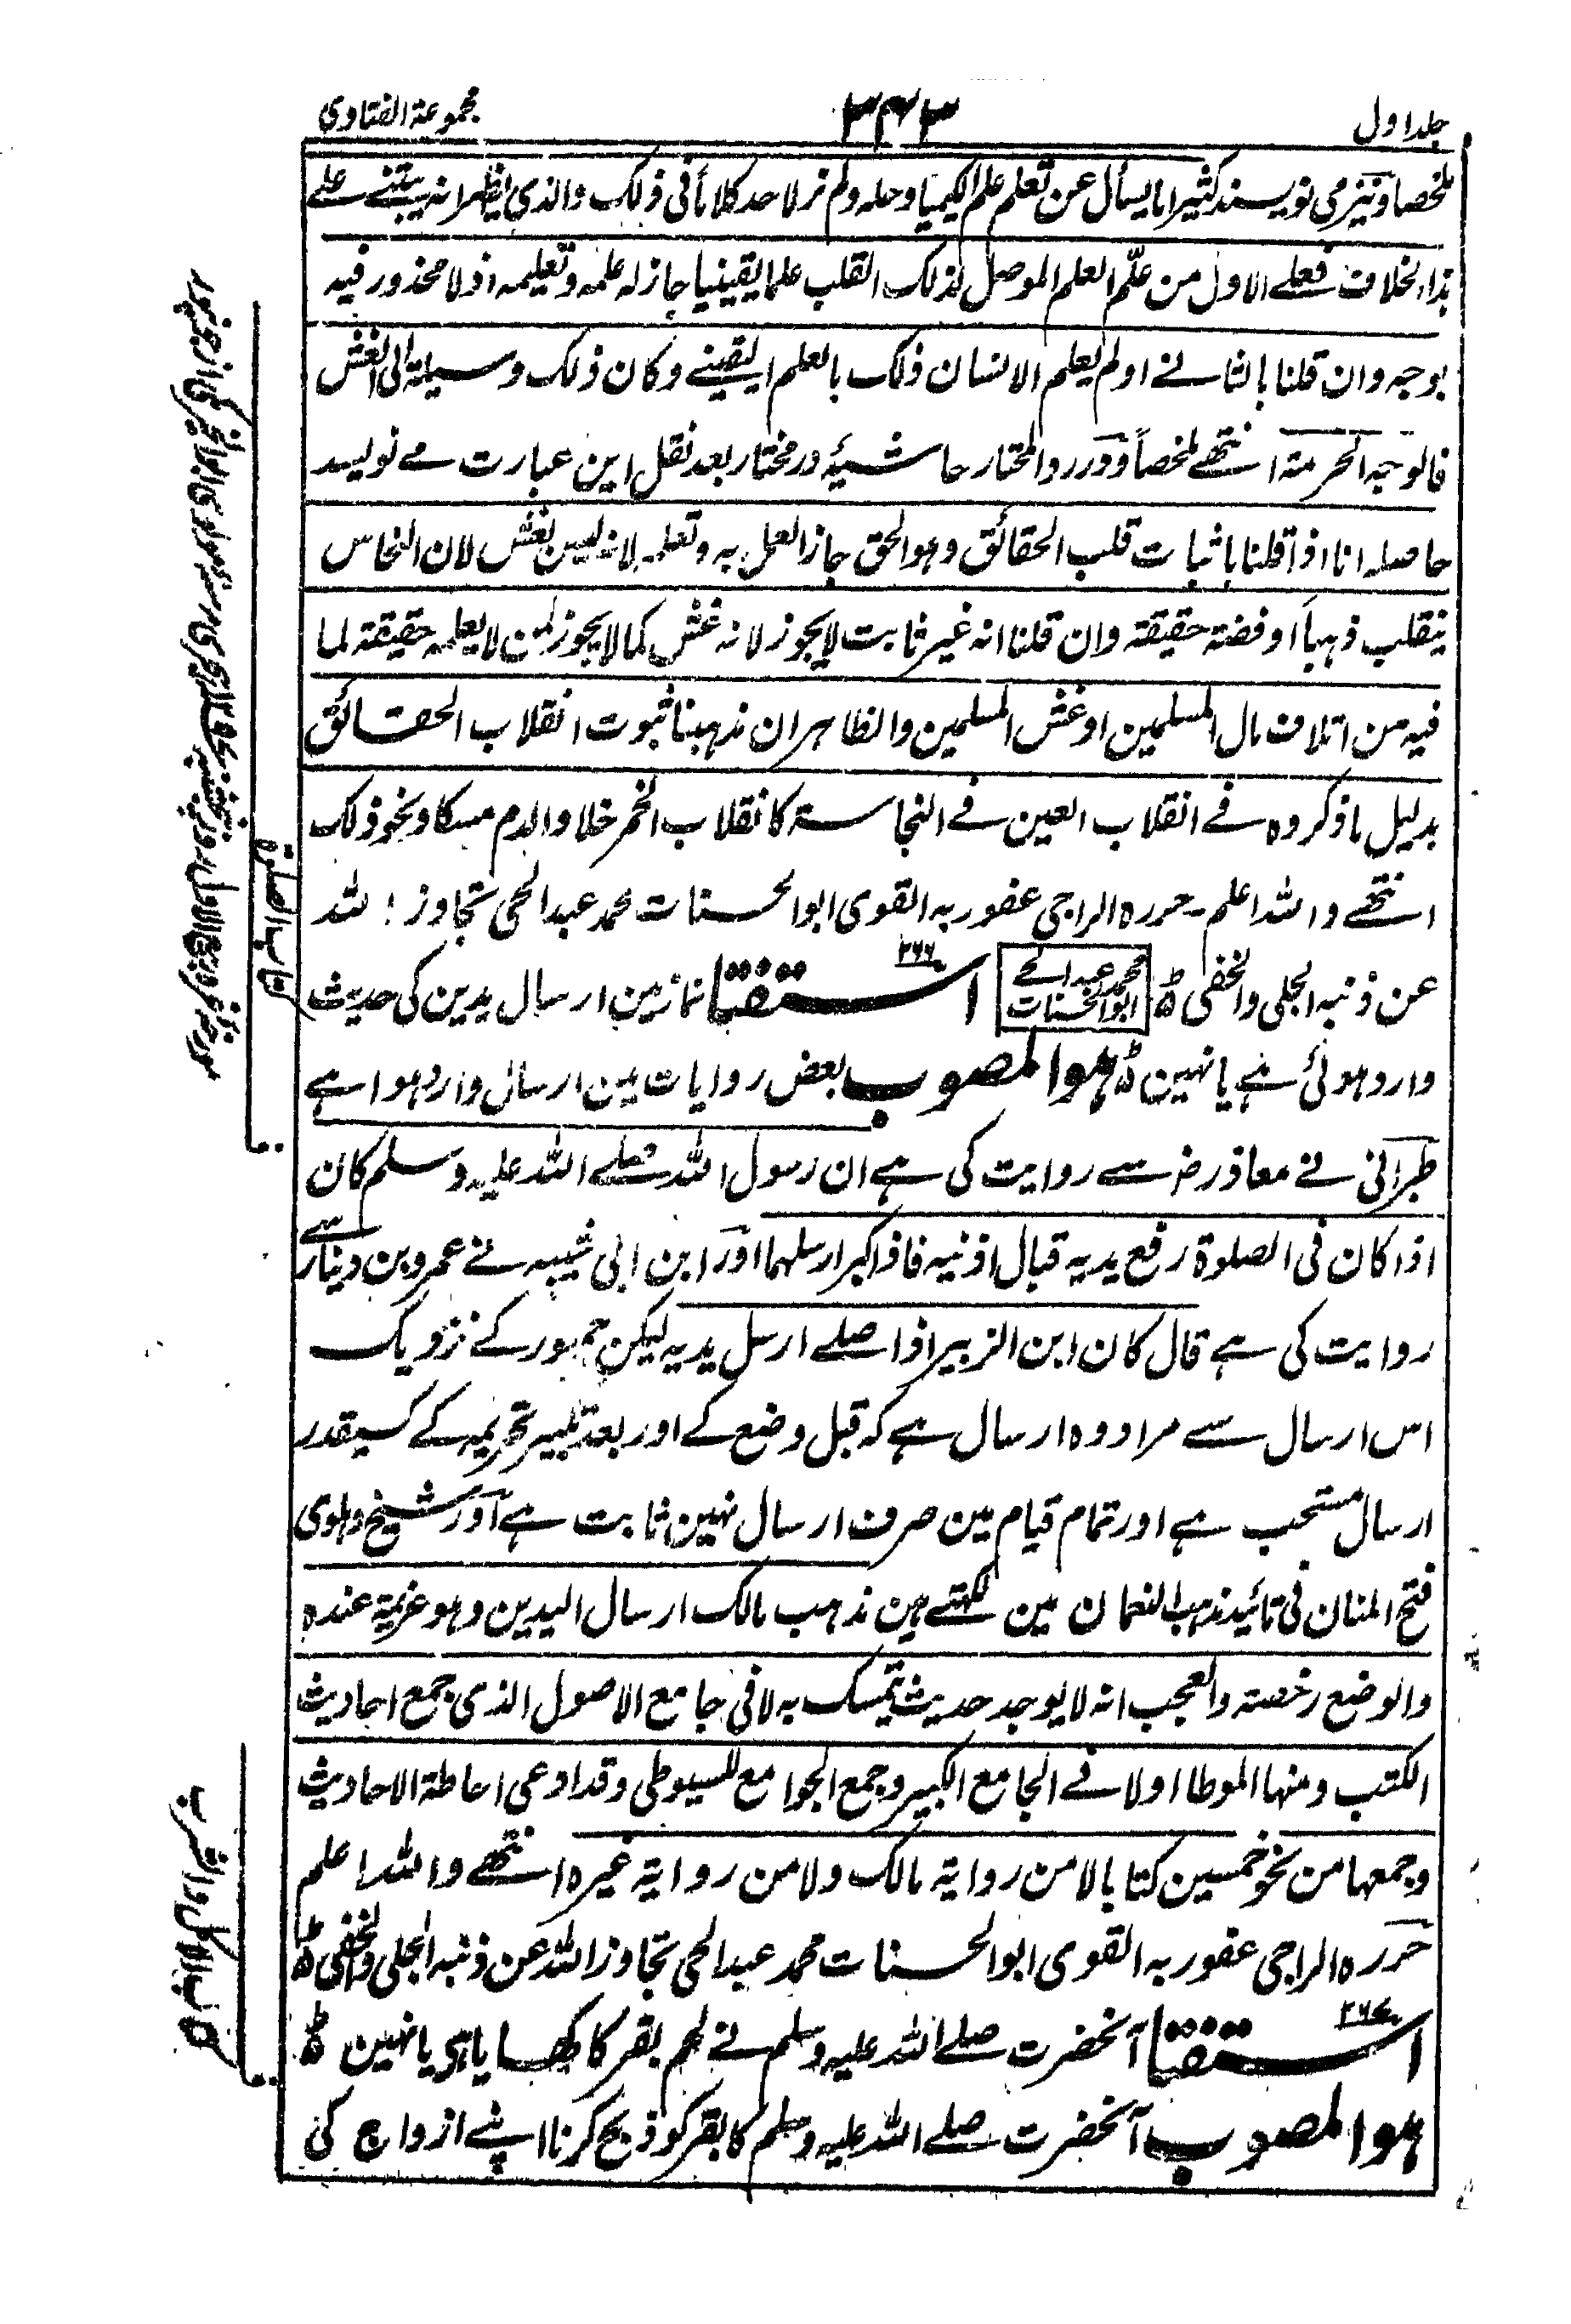 جلد اول
۳۴۳
مجموعة الفتاوى
ملخصا ونیز می نویسند کثیرا ما یسأل عن تعلم علم الکیمیا وحله ولم نر لاحد کلاما فی ذلک والذی یظهر انه یبتنے علے
هذا الخلاف فعلے الاول من علّم العلم الموصل لذلک القلب علما یقینیا جاز له علمه وتعلیمه اذ لا محذور فیه
بوجه وان قلنا بالثانے او لم یعلم الانسان ذلک بالعلم الیقینے وکان ذلک وسیلة الی الغش
فالوجه الحرمة انتهے ملخصاً ودر رد المحتار حاشیۂ در مختار بعد نقل این عبارت مے نویسد
حاصله انا اذا قلنا باثبات قلب الحقائق وهو الحق جاز العمل به وتعلمه لانه لیس بغش لان النحاس
ینقلب ذهباً او فضة حقیقة وان قلنا انه غیر ثابت لا یجوز لانه غش کما لا یجوز لمن لا یعلمه حقیقة لما
فیه من اتلاف مال المسلمین او غش المسلمین والظاهر ان مذهبنا ثبوت انقلاب الحقائق
بدلیل ما ذکروه فے انقلاب العین فے النجاسة کانقلاب الخمر خلا والدم مسکا ونحو ذلک
انتهے والله اعلم ۔ حرره الراجی عفو ربه القوی ابو الحسنات محمد عبد الحی تجاوز الله
عن ذنبه الجلی والخفی ۵ محمد عبد الحے ابو الحسنات استفتا ۲۶۶ نماز مین ارسال یدین کی حدیث
وارد ہوئی ہے یا نہین ۵ ہو المصوب بعض روایات مین ارسال وارد ہوا ہے
طبرانی نے معاذ رضہ سے روایت کی ہے ان رسول الله صلے الله علیه وسلم کان
اذا کان فی الصلوة رفع یدیه قبال اذنیه فاذا کبر ارسلهما اور ابن ابی شیبہ نے عمرو بن دینار سے
روایت کی ہے قال کان ابن الزبیر اذا صلے ارسل یدیه لیکن جمہور کے نزدیک
اس ارسال سے مراد وہ ارسال ہے کہ قبل وضع کے اور بعد تکبیر تحریمہ کے کسیقدر
ارسال مستحب ہے اور تمام قیام مین صرف ارسال نہین ثابت ہے اور شیخ دہلوی
فتح المنان فی تائید مذهب النعمان مین لکھتے ہین مذهب مالک ارسال الیدین وهو عزیمة عنده
والوضع رخصة والعجب انه لا یوجد حدیث یتمسک به لا فی جامع الاصول الذی جمع احادیث
الکتب ومنها الموطا اولا فے الجامع الکبیر وجمع الجوامع للسیوطی وقد ادعی احاطة الاحادیث
وجمعها من نحو خمسین کتابا لا من روایة مالک ولا من روایة غیره انتهے والله اعلم
حرره الراجی عفو ربه القوی ابو الحسنات محمد عبد الحی تجاوز الله عن ذنبه الجلی والخفی ۵
استفتا ۲۶۷ آنحضرت صلے الله علیه وسلم نے لحم بقر کا کھایا ہی یا نہین ۵
ہو المصوب آنحضرت صلے الله علیه وسلم کا بقر کو ذبح کرنا اپنے ازواج کی
کتاب الصلوة
کتاب الاکل والشرب